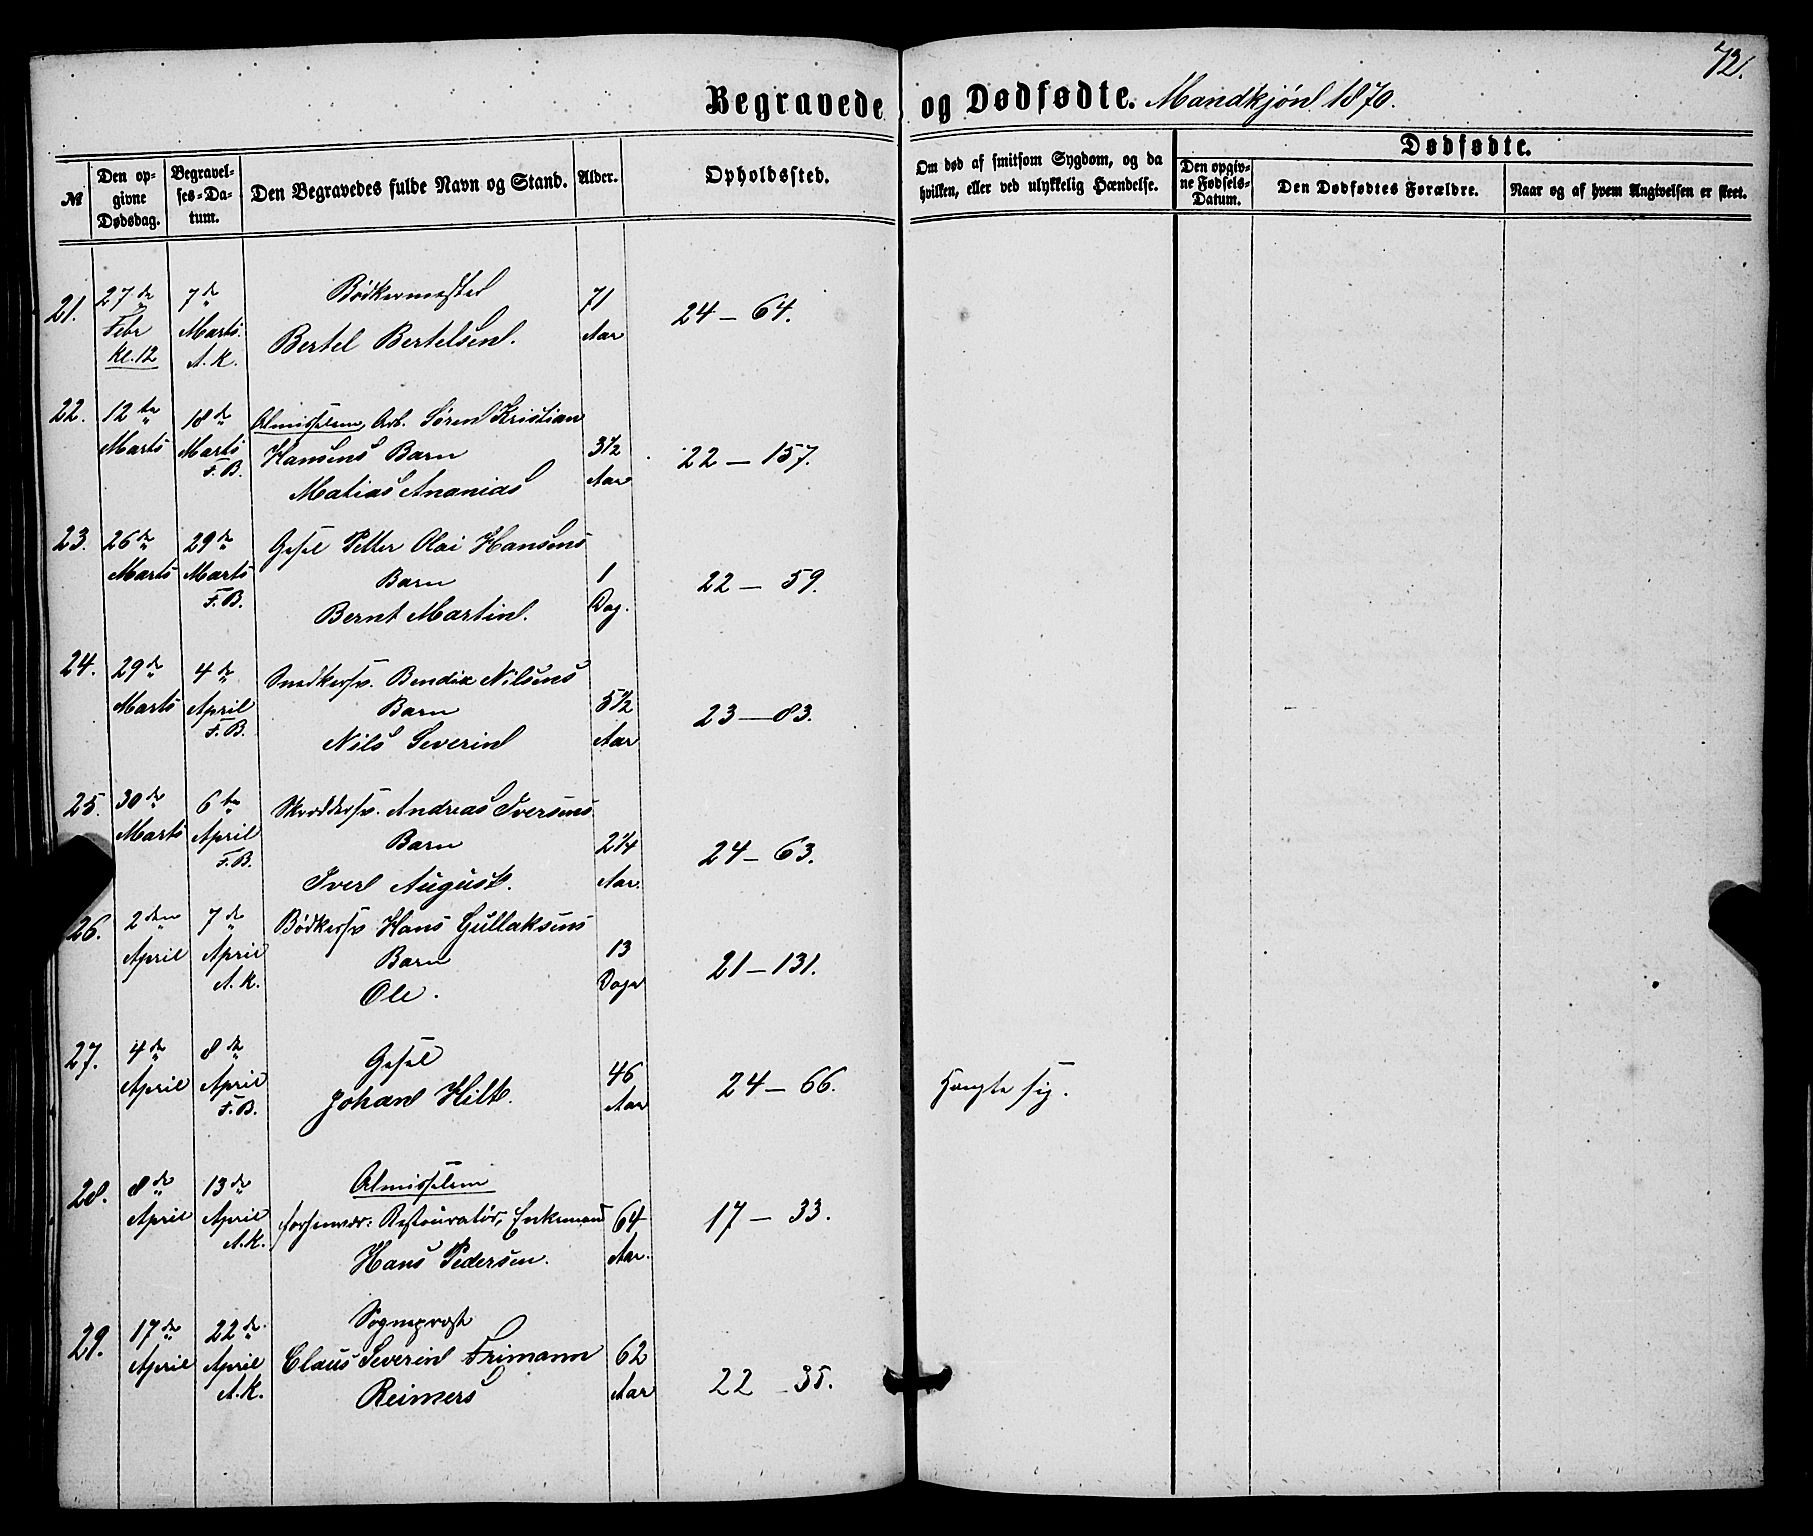 72.
Begravede og Dødfødte. Mandkjøn 1870.
№
Den opgivne Dødsdag.
Begravelses-Datum.
Den Begravedes fulde Navn og Stand.
Alder.
Opholdssted.
Om død af smitsom Sygdom, og da hvilken, eller ved ulykkelig Hændelse.
Dødfødte.
Den opgivne Fødsels-Datum.
Den Dødfødtes Forældre.
Naar og af hvem Angivelsen er skeet.
21. 27de Febr kl. 12 7de Marts. A.K.
Bødkermester
Bertel Bertelsen.
71 Aar
24 — 64.
22. 12te Marts 18de Marts F.B.
Almisselem, Arb. Søren Kristian
Hansens Barn
Matias Ananias
3 1/2 Aar
22 — 157.
23. 26de Marts 29de Marts F.B.
Gesel Petter Olai Hansens
Barn
Bernt Martin.
1 Dag.
22 — 59.
24. 29de Marts 4de April F.B.
Snedkersv. Bendix Nilsens
Barn
Nils Severin
5 1/2 Aar
23 — 83.
25. 30de Marts 6te April F.B.
Skræddersv. Andreas Iversens
Barn
Iver August.
2 1/4 Aar.
24 — 63.
26. 2den April 7de April A.K.
Bødkersv Hans Gullaksens
Barn
Ole.
13 Dage
21 — 131.
27. 4de April 8de April F.B.
Gesel
Johan Hilt.
46 Aar
24 — 66.
Hængte sig.
28. 8de April 13de April A.K.
Almisselem
forhenvær: Restauratør, Enkemand
Hans Pedersen.
64 Aar.
17 — 33.
29. 17de April 22de April A.K.
Sogneprest
Claus Severin Frimann
Reimers
62 Aar
22 — 35.